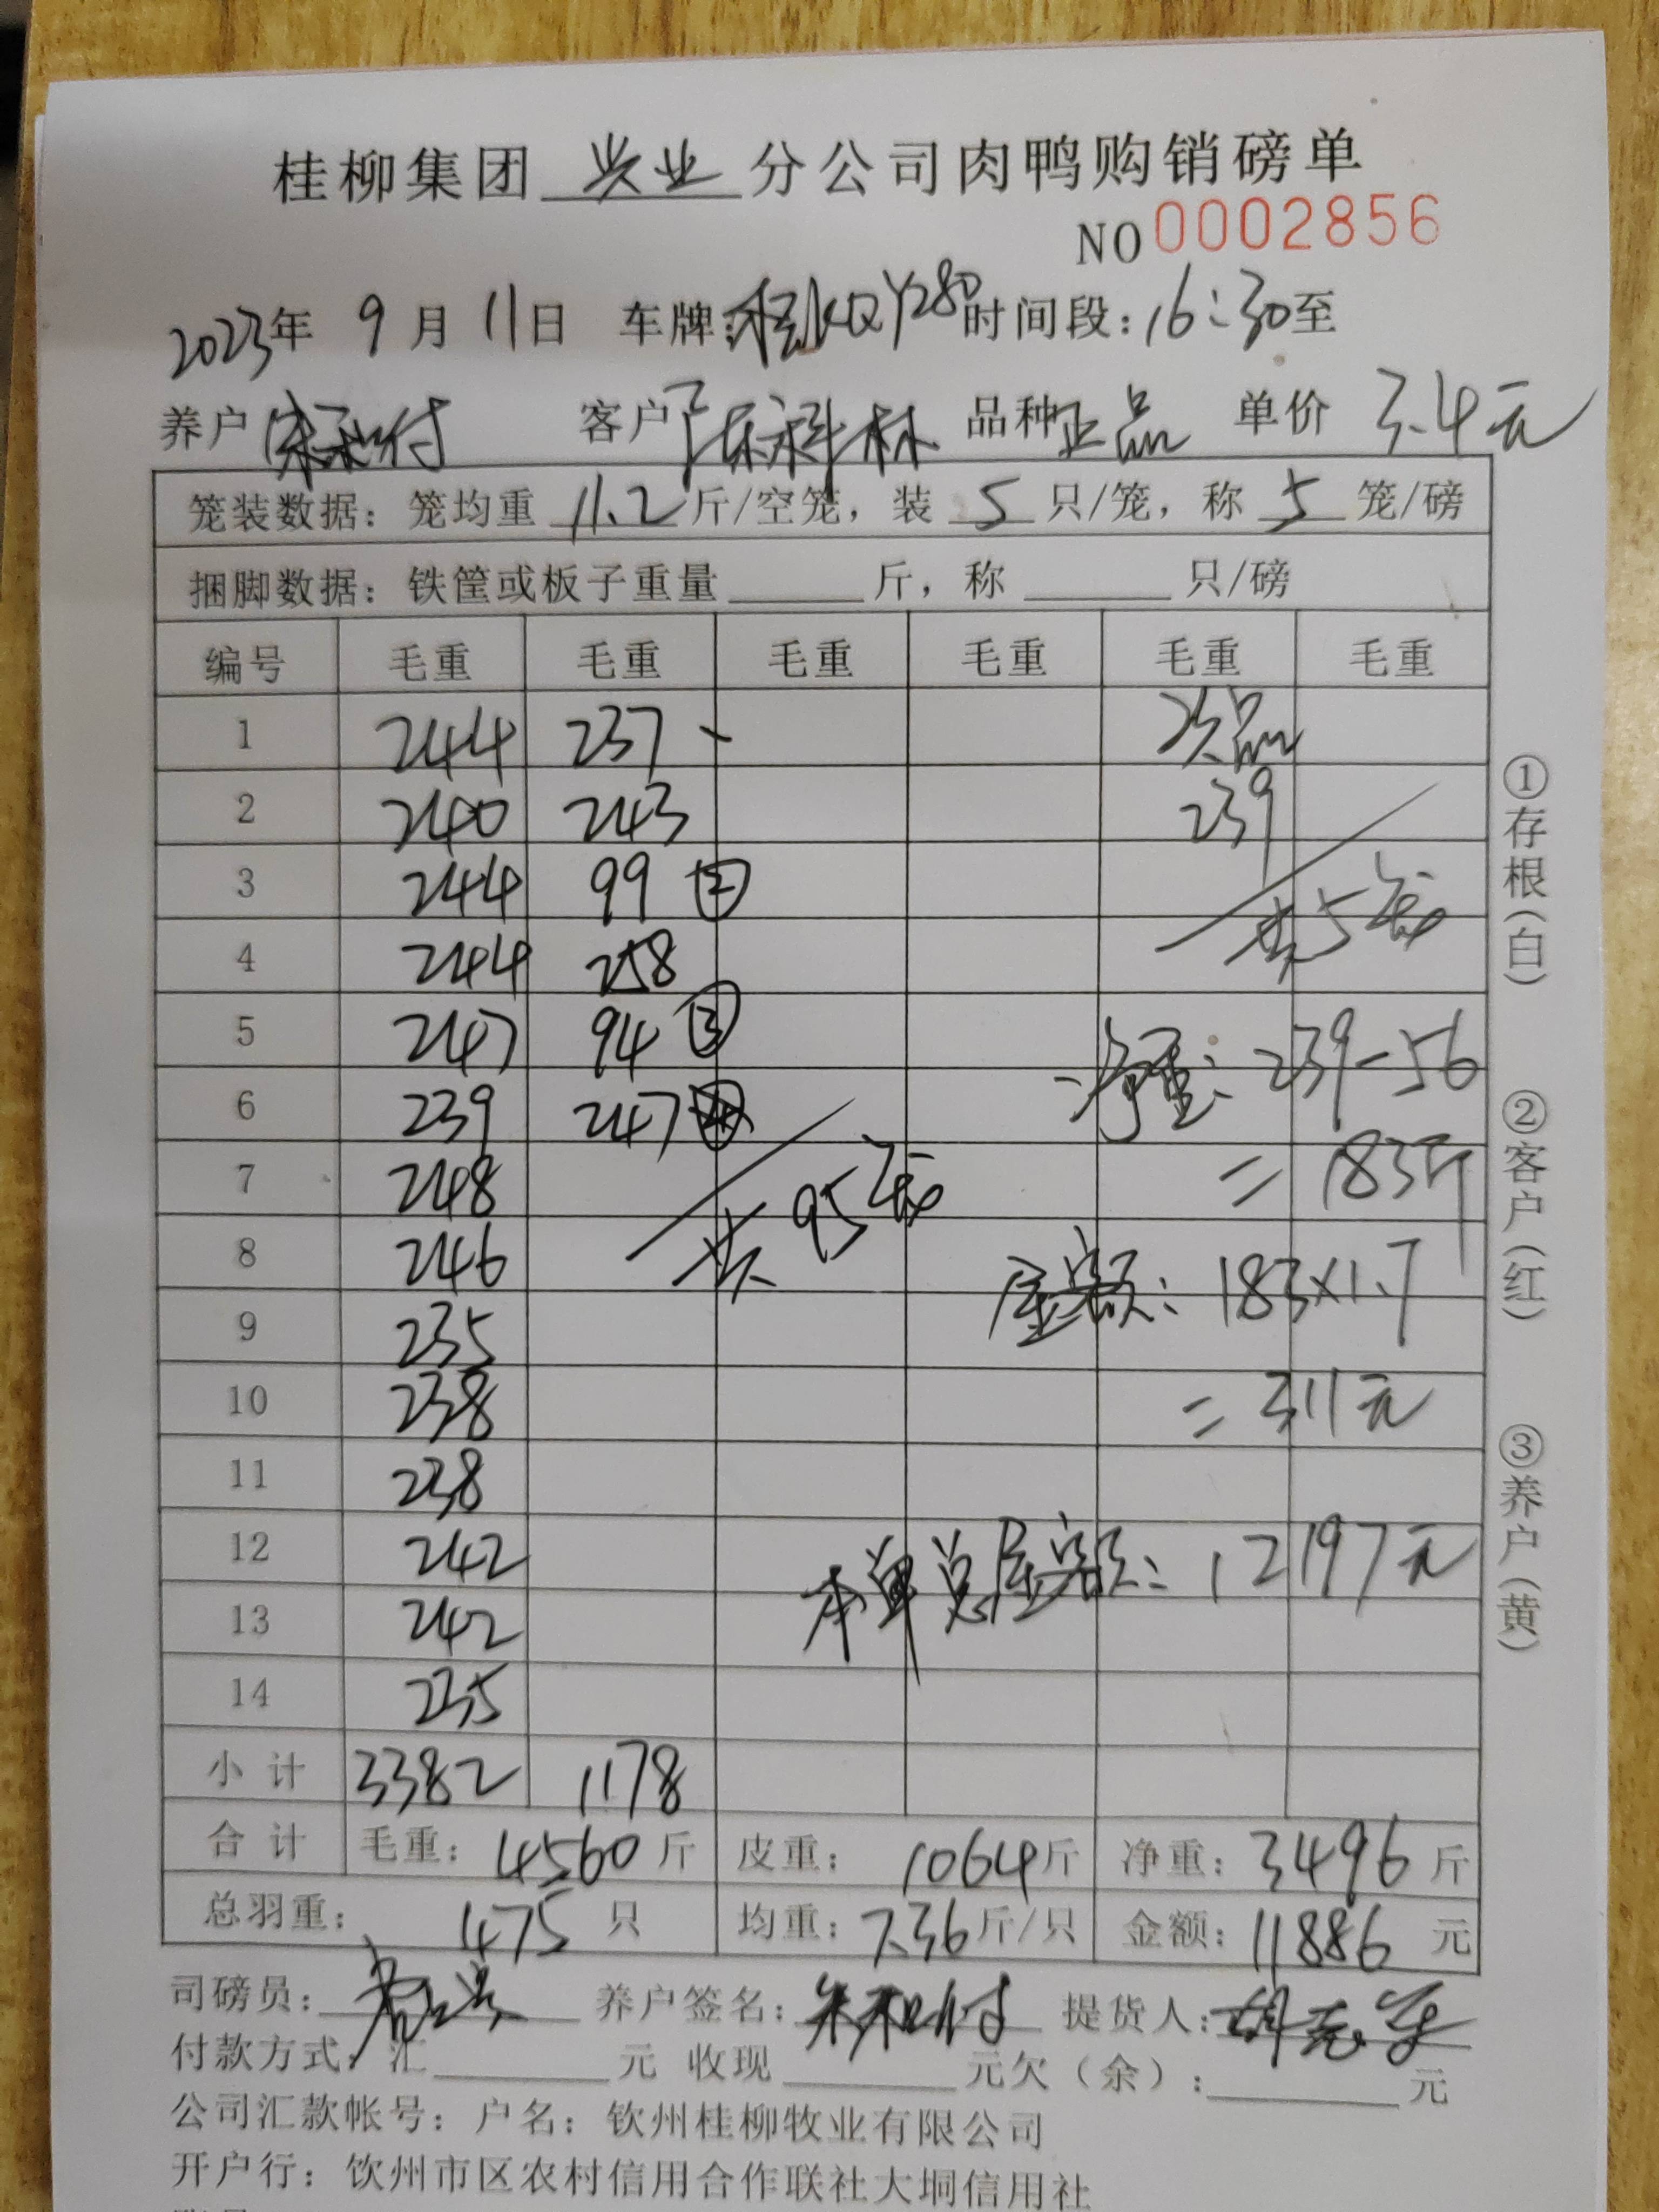 桂柳集团 兴业 分公司肉鸭购销磅单
NO 0002856
2023年 9月 11日 车牌: 时间段: 16:30至
养户 客户 陈科林 品种 正品 单价 3.4元
笼装数据: 笼均重 11.2 斤/空笼, 装 5 只/笼, 称 5 笼/磅
捆脚数据: 铁筐或板子重量 斤, 称 只/磅
编号 毛重 毛重 毛重 毛重 毛重 毛重
1 244 237 次品
2 240 243 239
3 244 99 ② 共5笼
4 244 258
5 247 94 ③ 净重: 239-56
6 239 247
7 248 共95笼 = 183斤
8 246 金额: 183×1.7
9 235
10 238 = 311元
11 238
12 242 本单总金额: 12197元
13 242
14 235
小计 3382 1178
合计 毛重: 4560 斤 皮重: 1064斤 净重: 3496 斤
总羽重: 475 只 均重: 7.36斤/只 金额: 11886 元
司磅员: 养户签名: 提货人:
付款方式: 汇 元 收现 元欠(余): 元
公司汇款帐号: 户名: 钦州桂柳牧业有限公司
开户行: 钦州市区农村信用合作联社大垌信用社
①存根(白)
②客户(红)
③养户(黄)